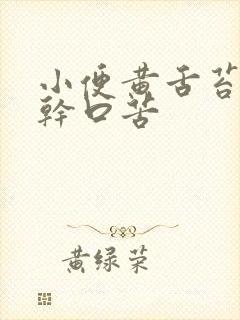 小便黄舌苔
幹口苦
黄绿荣